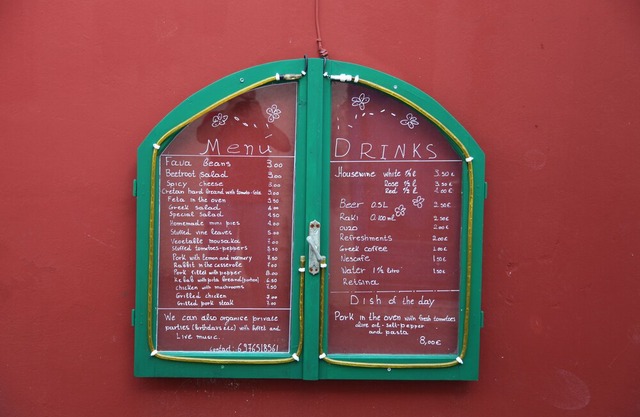 Menu
Fava beans 3.00
Beetroot salad 3.00
Spicy cheese 3.00
Cretan hard bread with tomato-feta 3.00
Feta in the oven 3.50
Greek salad 4.00
Special salad 4.50
Homemade mini pies 4.00
Stuffed vine leaves 5.00
Vegetable mousaka
Stuffed tomatoes-peppers 5.50
Pork with lemon and rosemary 7.50
Rabbit in the casserole 7.00
Pork filled with pepper 8.00
Kebab with pita bread (portion) 6.50
Chicken with mushrooms 7.50
Grilled chicken 7.00
Grilled pork steak 7.00
We can also organise private
parties (birthdays etc) with buffet and
Live music.
contact: 6976518561
DRINKS
Housewine white 1/2 l 3.50 €
Rose 1/2 l 3.50 €
Red 1/2 l
Beer 0.5L 2.50€
Raki 0.100ml 2.50€
ouzo 2.00€
Refreshments 2.00€
Greek coffee 1.50€
Nescafe 1.50€
Water 1 1/2 litro 1.50€
Retsina
Dish of the day
Pork in the oven with fresh tomatoes
olive oil-salt-pepper
and pasta
8,00€